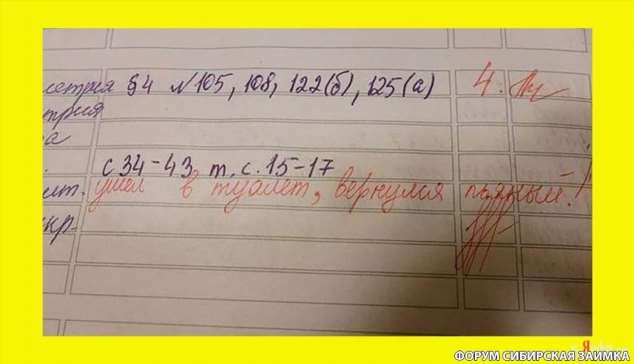 §4 №105, 108, 122(б), 125(а) 4.
трия
а
с 34-43 т. с. 15-17
ушел в туалет, вернулся пьяный!
ФОРУМ СИБИРСКАЯ ЗАИМКА